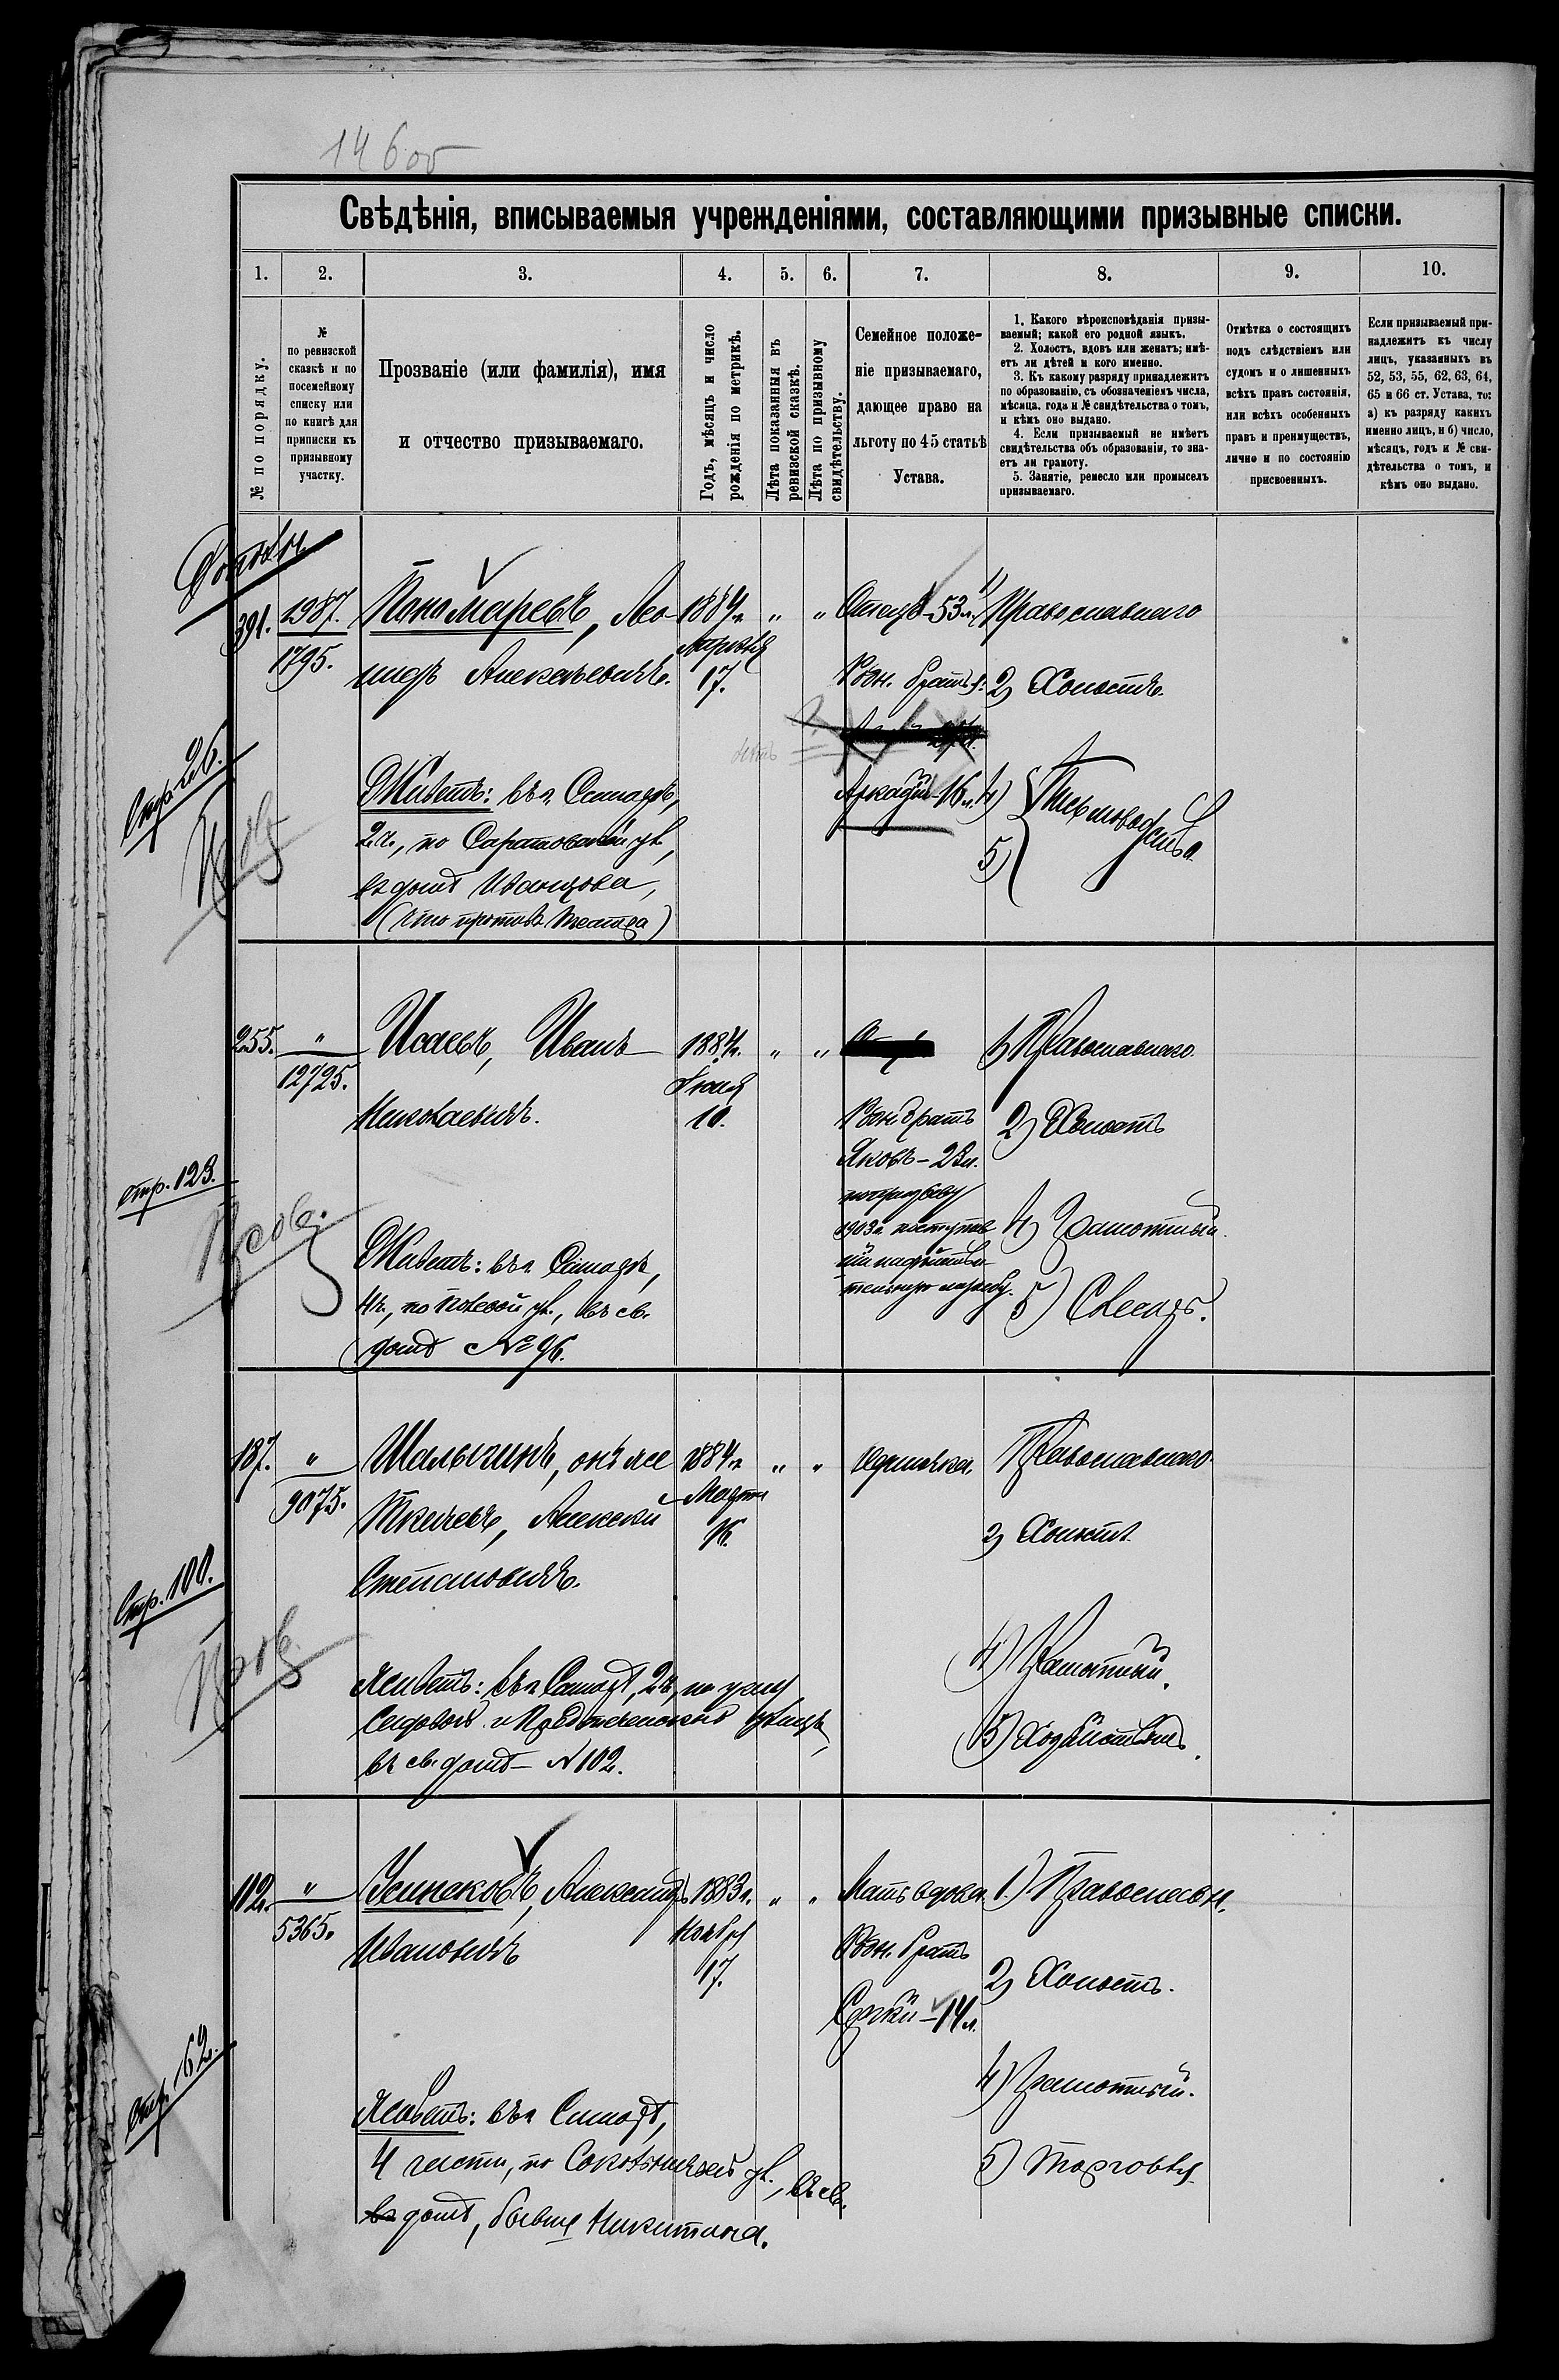 146об
Свѣдѣнія, вписываемыя учрежденіями, составляющими призывные списки.
1. 2. 3. 4. 5. 6. 7. 8. 9. 10.
№ по порядку.
№
по ревизской
сказкѣ и по
посемейному
списку или
по книгѣ для
приписки къ
призывному
участку.
Прозваніе (или фамилія), имя
и отчество призываемаго.
Годъ, мѣсяцъ и число
рожденія по метрикѣ.
Лѣта показанныя въ
ревизской сказкѣ.
Лѣта по призывному
свидѣтельству.
Семейное положе-
ніе призываемаго,
дающее право на
льготу по 45 статьѣ
Устава.
1. Какого вѣроисповѣданія призы-
ваемый; какой его родной языкъ.
2. Холостъ, вдовъ или женатъ; имѣ-
етъ ли дѣтей и кого именно.
3. Къ какому разряду принадлежитъ
по образованію, съ обозначеніемъ числа,
мѣсяца, года и № свидѣтельства о томъ,
и кѣмъ оно выдано.
4. Если призываемый не имѣетъ
свидѣтельства объ образованіи, то зна-
етъ ли грамоту.
5. Занятіе, ремесло или промыселъ
призываемаго.
Отмѣтка о состоящихъ
подъ слѣдствіемъ или
судомъ и о лишенныхъ
всѣхъ правъ состоянія,
или всѣхъ особенныхъ
правъ и преимуществъ,
лично и по состоянію
присвоенныхъ.
Если призываемый при-
надлежитъ къ числу
лицъ, указанныхъ въ
52, 53, 55, 62, 63, 64,
65 и 66 ст. Устава, то:
а) къ разряду какихъ
именно лицъ, и б) число,
мѣсяцъ, годъ и № сви-
дѣтельства о томъ, и
кѣмъ оно выдано.
391.
1987.
1795.
Пономаревъ, Лео-
нидъ Алексѣевичъ.
1884г.
Апрѣля
17.
" "
Отецъ-53л.
Родн. братья:
Аркадій-16л.
1) Православнаго
2) Холостъ.
4)
5)
Письмоводство
Стр. 26.
Пров
Живетъ: въ г. Самарѣ,
2ч., по Саратовской ул.,
въ домѣ Иванцова,
(что противъ театра)
255.
"
12725.
Исаевъ, Иванъ
Николаевичъ.
1884г.
Іюня
10.
" "
Родн братъ
Яковъ-23л.
по призыву
1903г. поступив
ши на дѣйстви
тельную службу.
1) Православнаго.
2) Холостъ
4) Грамотный.
5) Слесарь.
Стр. 123.
Пров.
Живетъ: въ г. Самарѣ,
4ч., по Полевой ул., въ св.
домѣ № 96.
187.
"
9075.
Шалыгинъ, онъ же
Ткачевъ, Алексѣй
Степановичъ.
1884г.
Марта
16.
" "
Одиночка.
Православнаго
2) Холостъ.
4) Грамотный.
Стр. 100.
Пров
Живетъ: въ г. Самарѣ, 2ч, по углу
Садовой и Предтеченской улицъ,
въ св. домѣ - № 102.
112.
"
5365.
Усинсковъ, Александръ
Ивановичъ
1883г.
Ноября
17.
" "
Мать вдова.
Родн. братъ
Сергѣй-14л.
1.) Православн.
2) Холостъ.
4) Грамотный.
5) Торговля
Стр. 62.
Живетъ: въ г. Самарѣ,
4 части, по Сокольничьей ул., въ св.
въ домѣ, бывш Никитина.